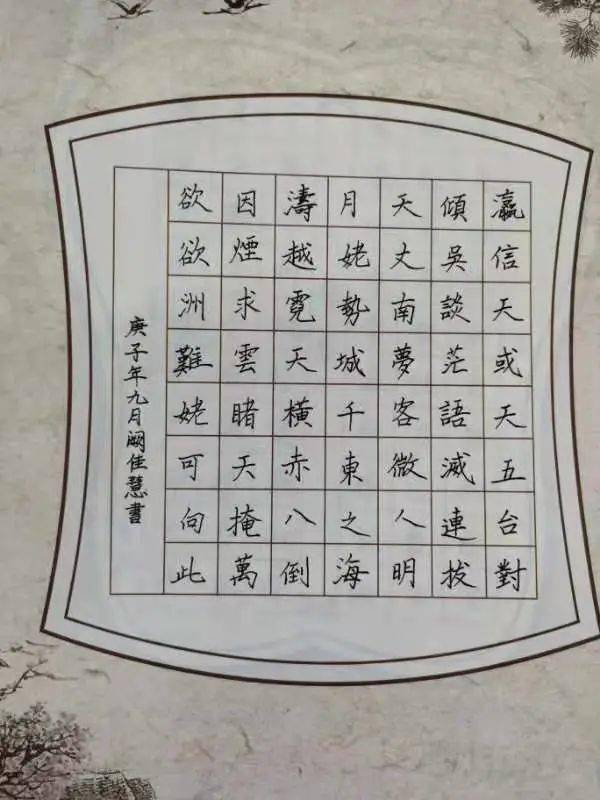 瀛信天或天五台對
傾吳談茫語滅連拔
天丈南夢客微人明
月姥勢城千東之海
濤越霓天橫赤八倒
因煙求雲睹天掩萬
欲欲洲難姥可向此
庚子年九月闕佳慧書